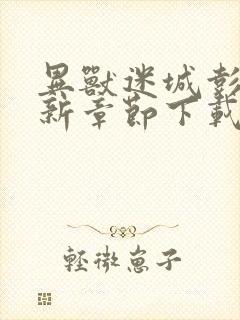 異獸迷城彭
新章節下載
輕微崽子